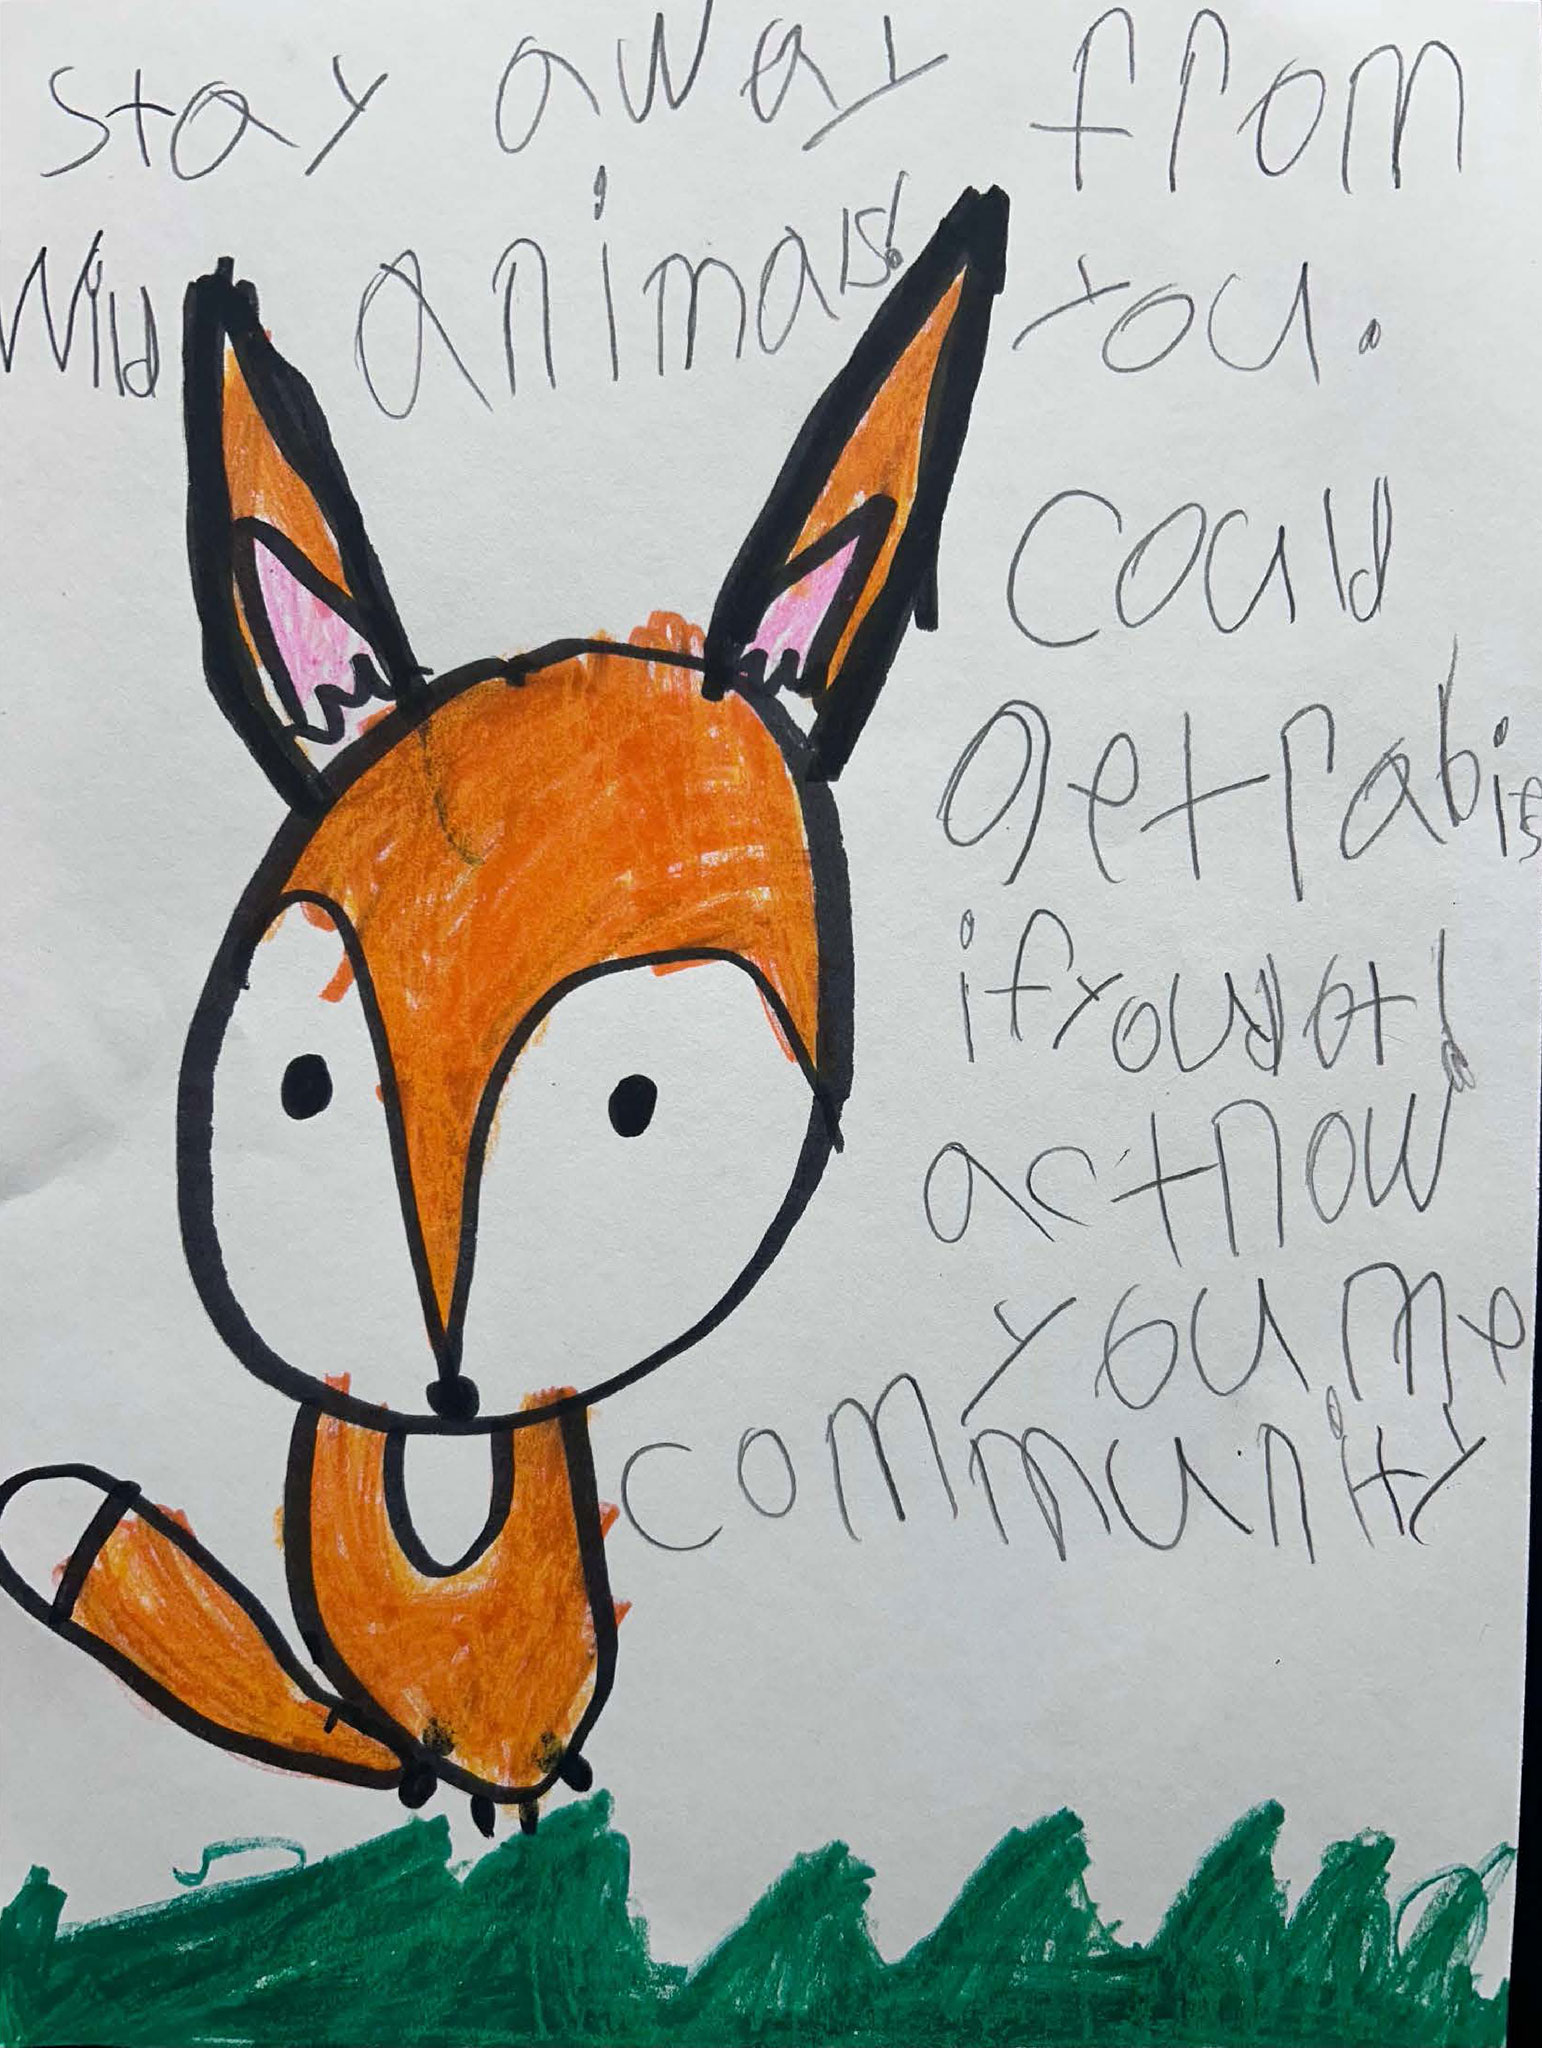 Stay away from
Wild animals! You.
Could
get rabies
if you
act now
you me
community